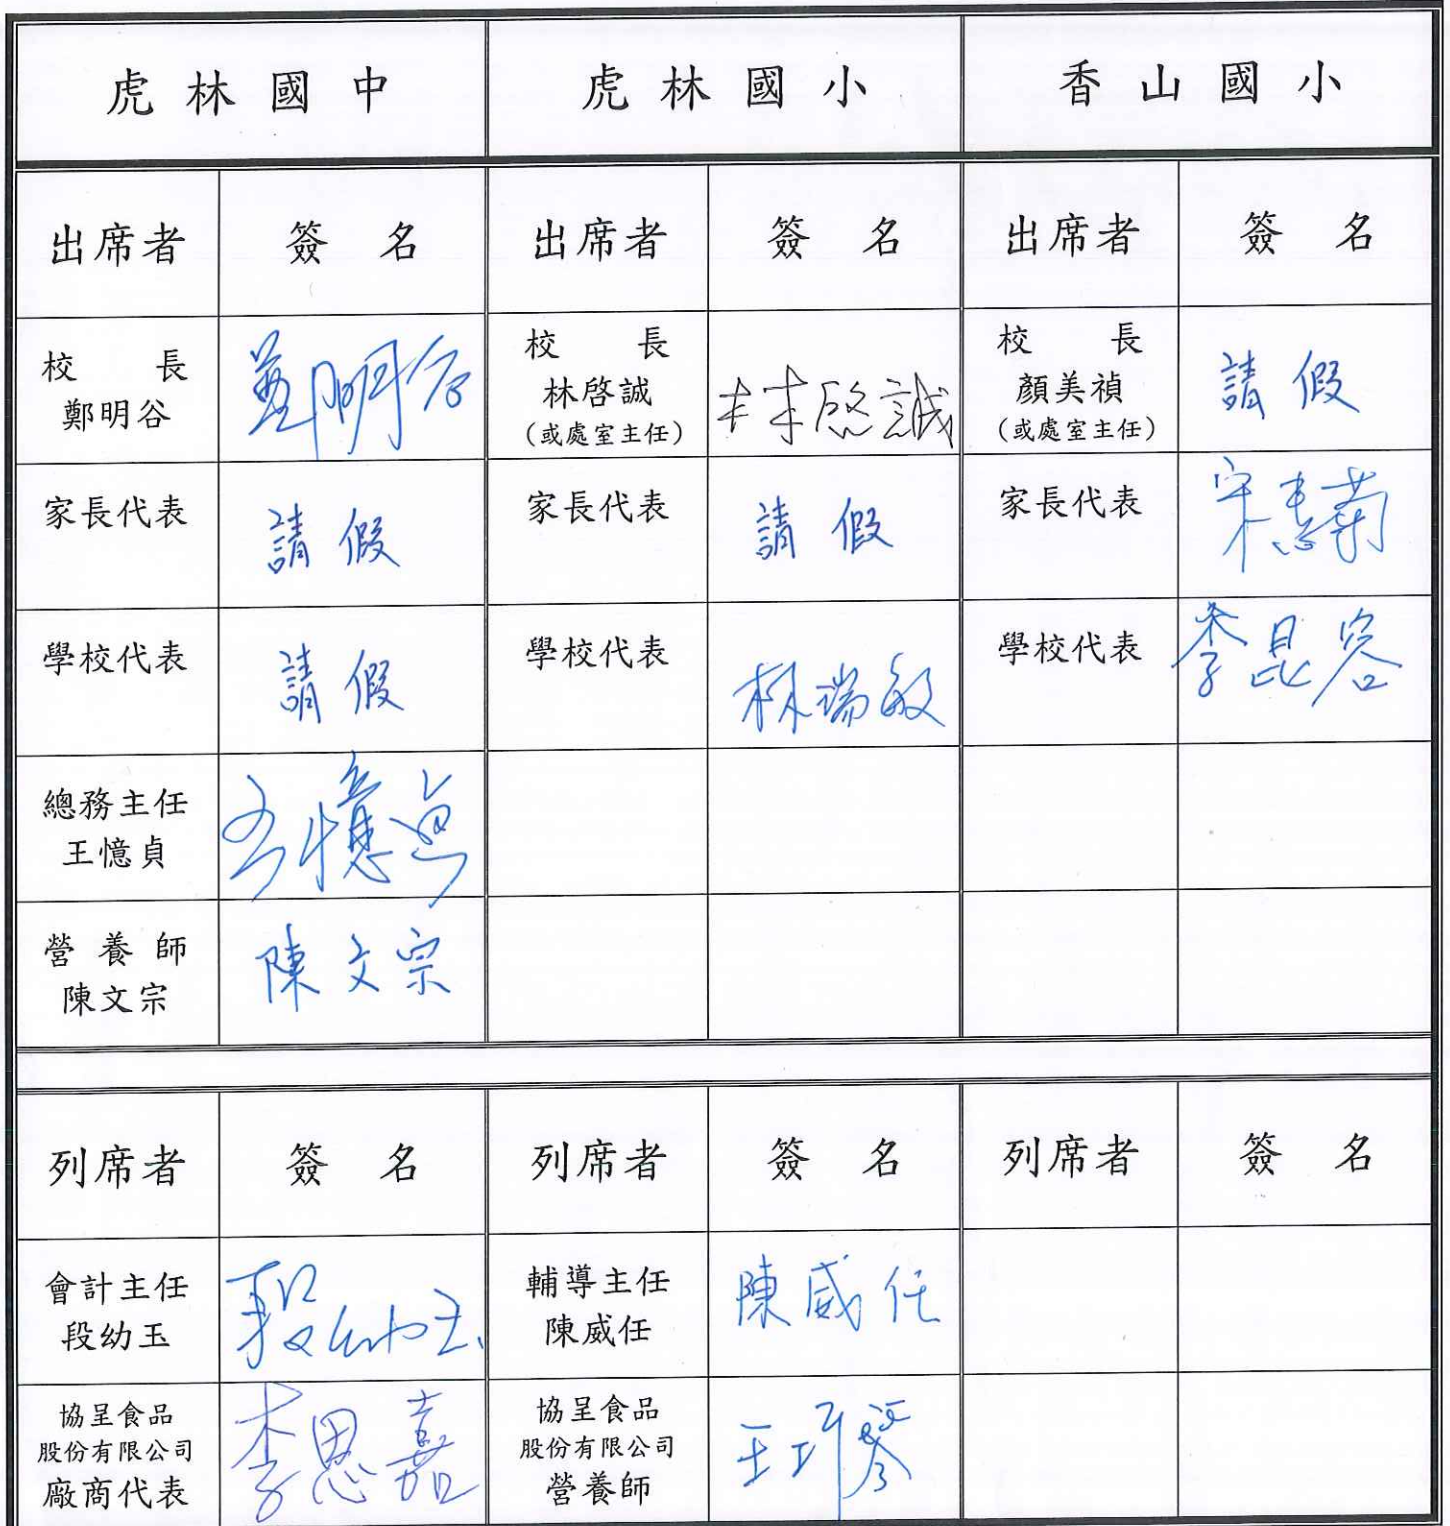 虎林國中 虎林國小 香山國小
出席者 簽名 出席者 簽名 出席者 簽名
校長 鄭明谷 鄭明谷 校長 林啓誠 (或處室主任) 林啓誠 校長 顏美禎 (或處室主任) 請假
家長代表 請假 家長代表 請假 家長代表 宋惠菊
學校代表 請假 學校代表 林瑞敏 學校代表 李昆容
總務主任 王憶貞 王憶貞
營養師 陳文宗 陳文宗
列席者 簽名 列席者 簽名 列席者 簽名
會計主任 段幼玉 段幼玉 輔導主任 陳威任 陳威任
協呈食品 股份有限公司 廠商代表 李恩嘉 協呈食品 股份有限公司 營養師 王巧琴